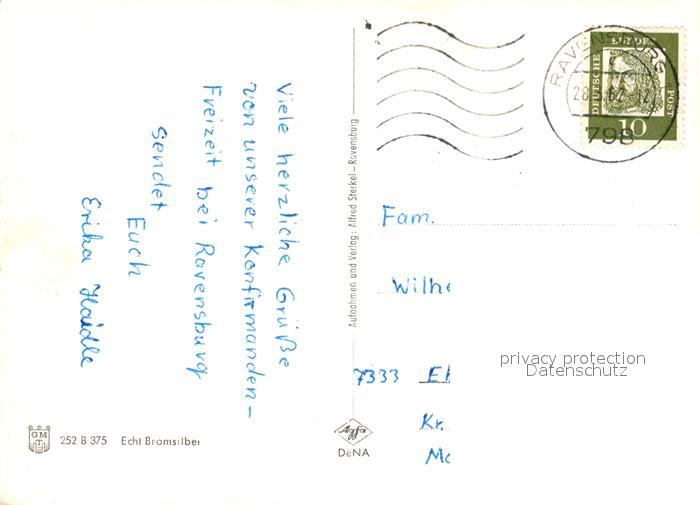 Viele herzliche Grüße
von unserer Konfirmanden-
Freizeit bei Ravensburg
sendet
Euch
Erika Haidle
Aufnahmen und Verlag: Alfred Sterkel – Ravensburg
RAVENSBURG
798
DEUTSCHE
BUNDES
POST
10
Fam.
Wilhe
7333 E
Kr.
privacy protection
Datenschutz
GM
252 B 375 Echt Bromsilber
Agfa
DeNA